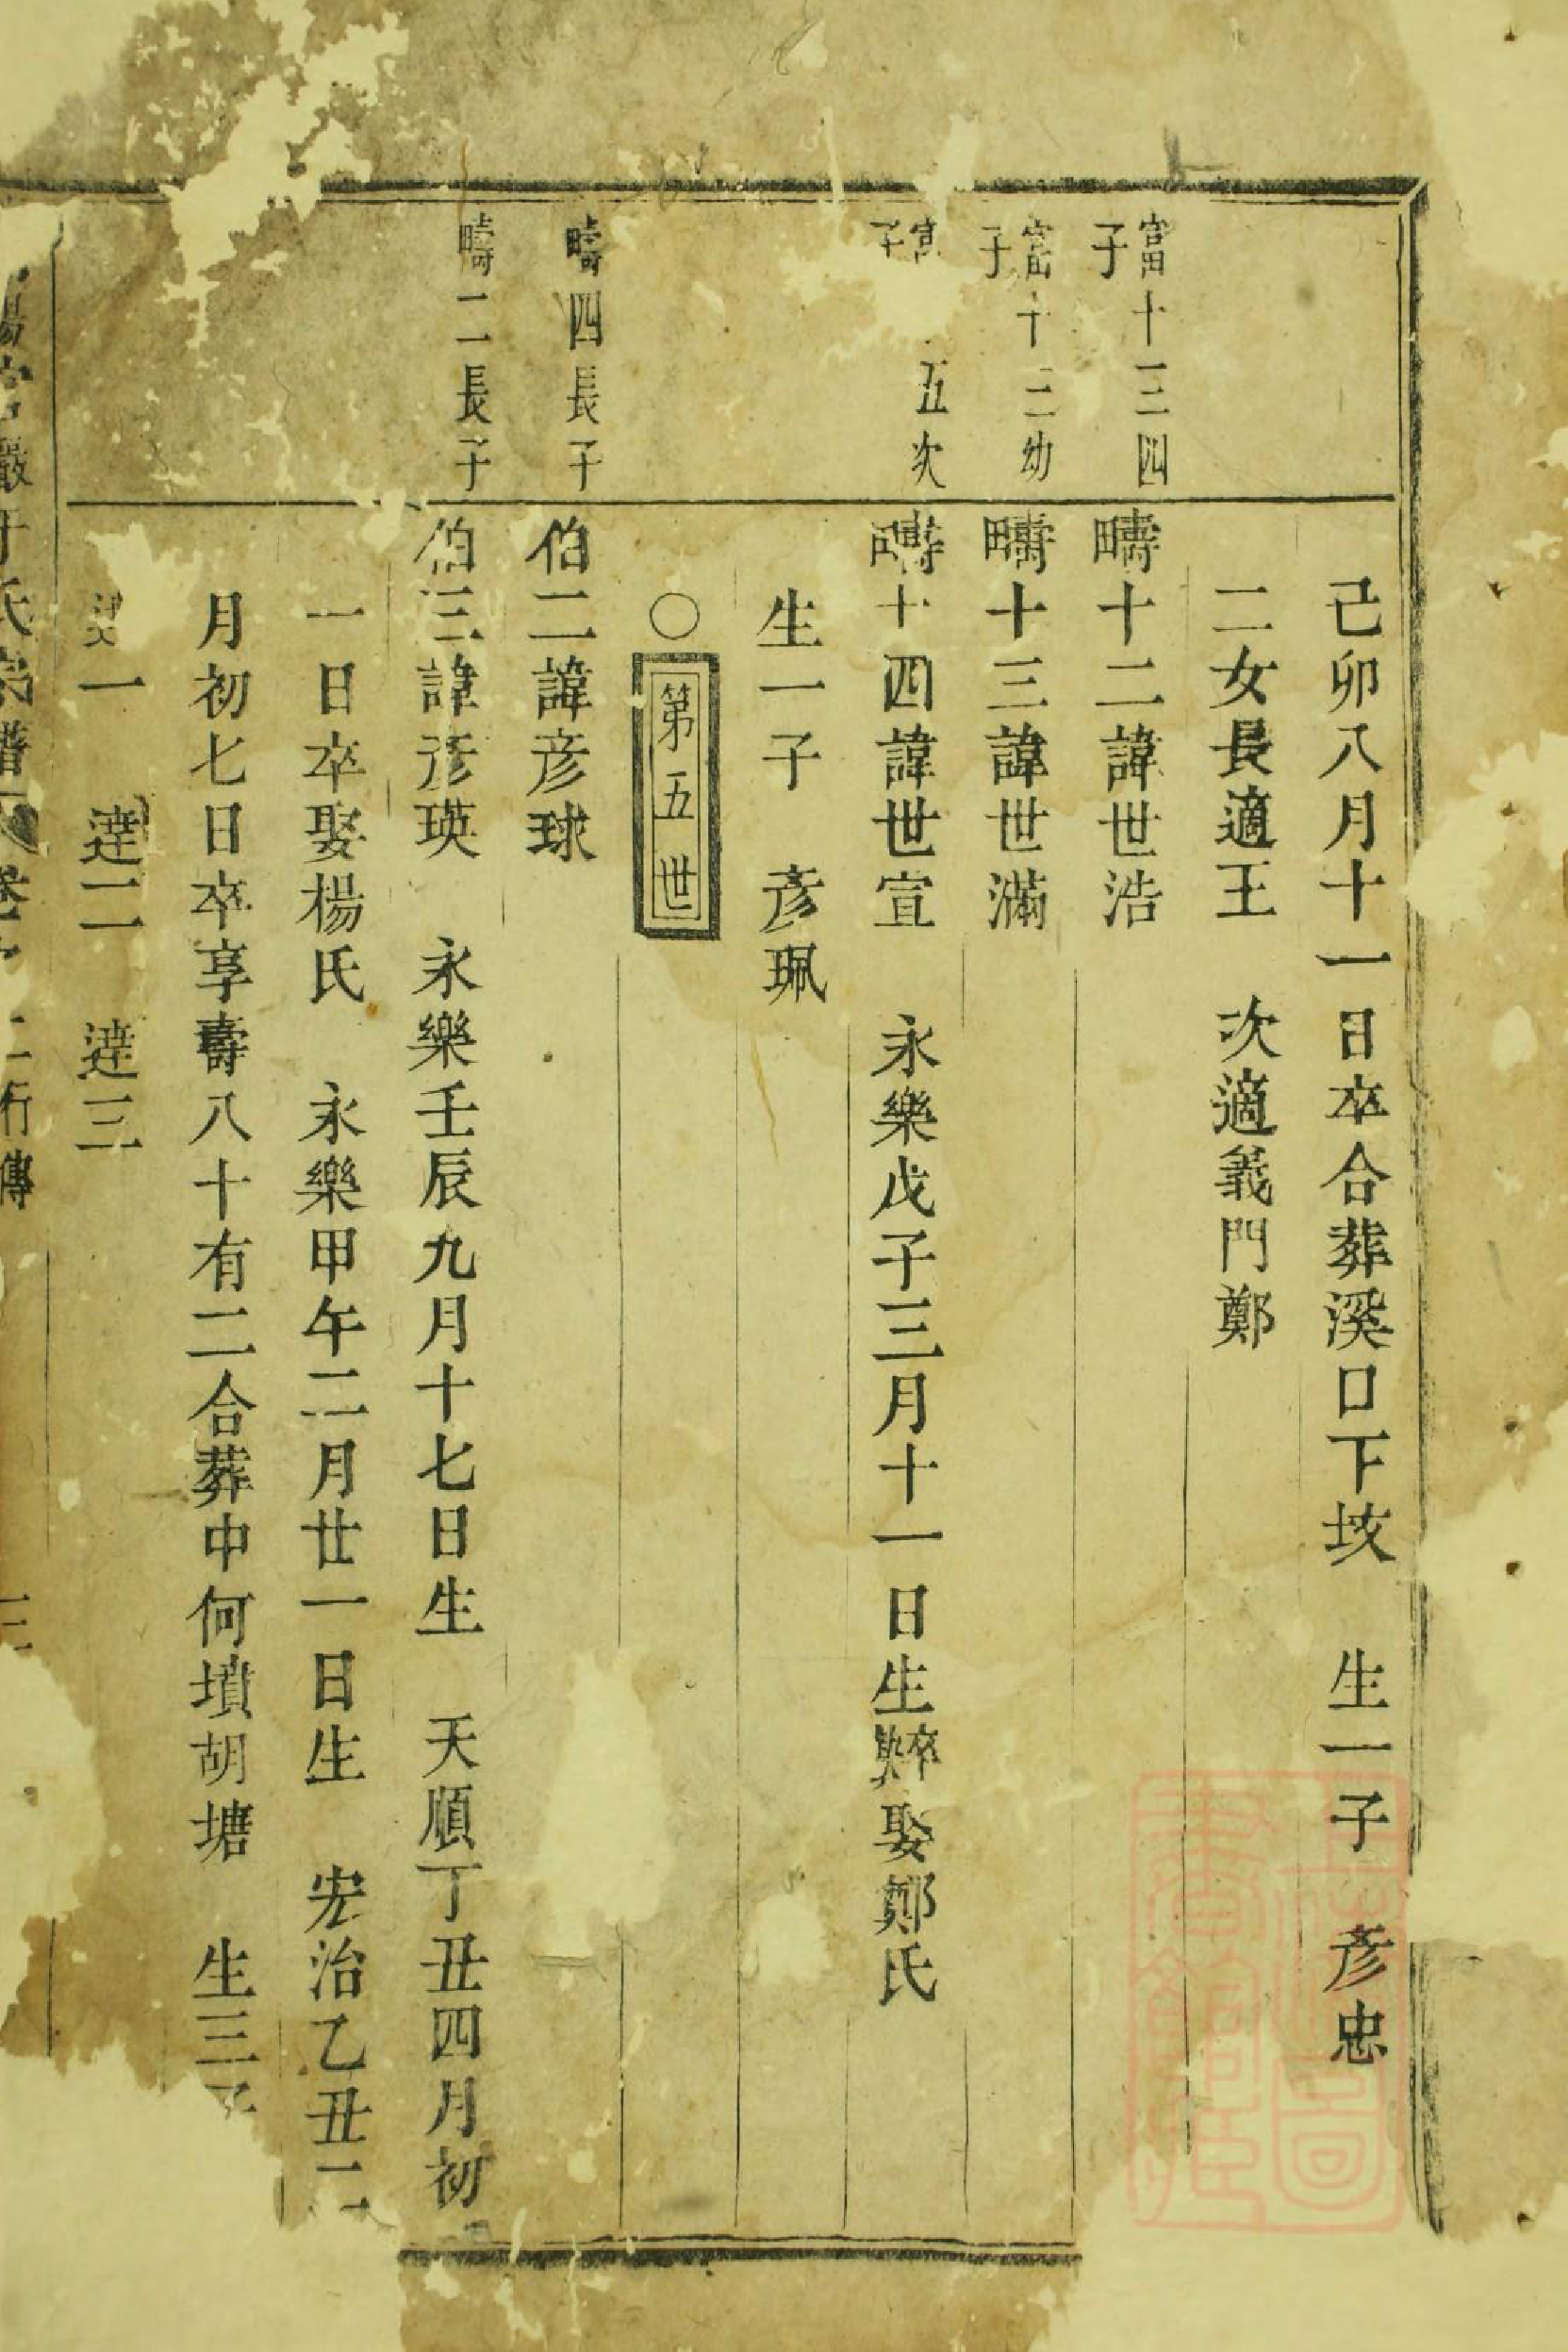 己卯八月十一日卒合葬溪口下坟 生一子 彥忠
二女長適王 次適義門鄭
富十三四子
疇十二諱世浩
富十二幼子
疇十三諱世滿
五次子
疇十四諱世宣 永樂戊子三月十一日生 卒 娶鄭氏
生一子 彥珮
○第五世
疇四長子
伯二諱彥球
疇二長子
伯三諱彥瑛 永樂壬辰九月十七日生 天順丁丑四月初
一日卒娶楊氏 永樂甲午二月廿一日生 宏治乙丑二
月初七日卒享壽八十有二合葬中何墳胡塘 生三子
一 達二 達三
氏宗譜 行傳